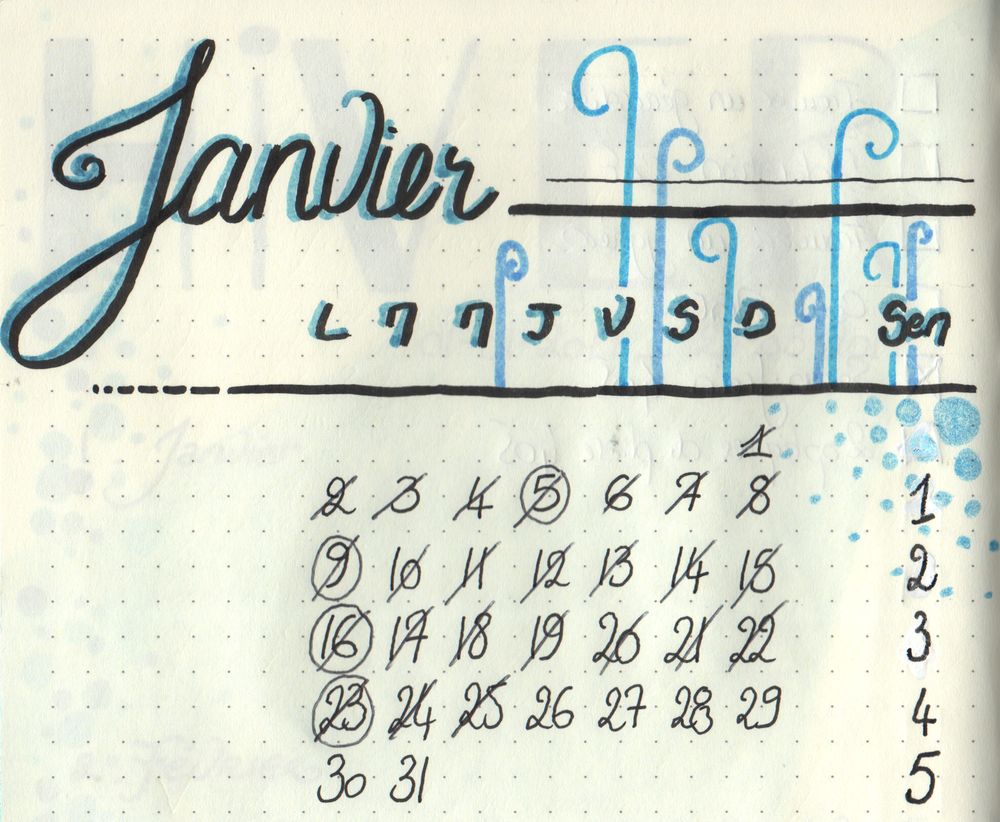 Janvier
L M M J V S D Sem
1
2 3 4 5 6 7 8 1
9 10 11 12 13 14 15 2
16 17 18 19 20 21 22 3
23 24 25 26 27 28 29 4
30 31 5